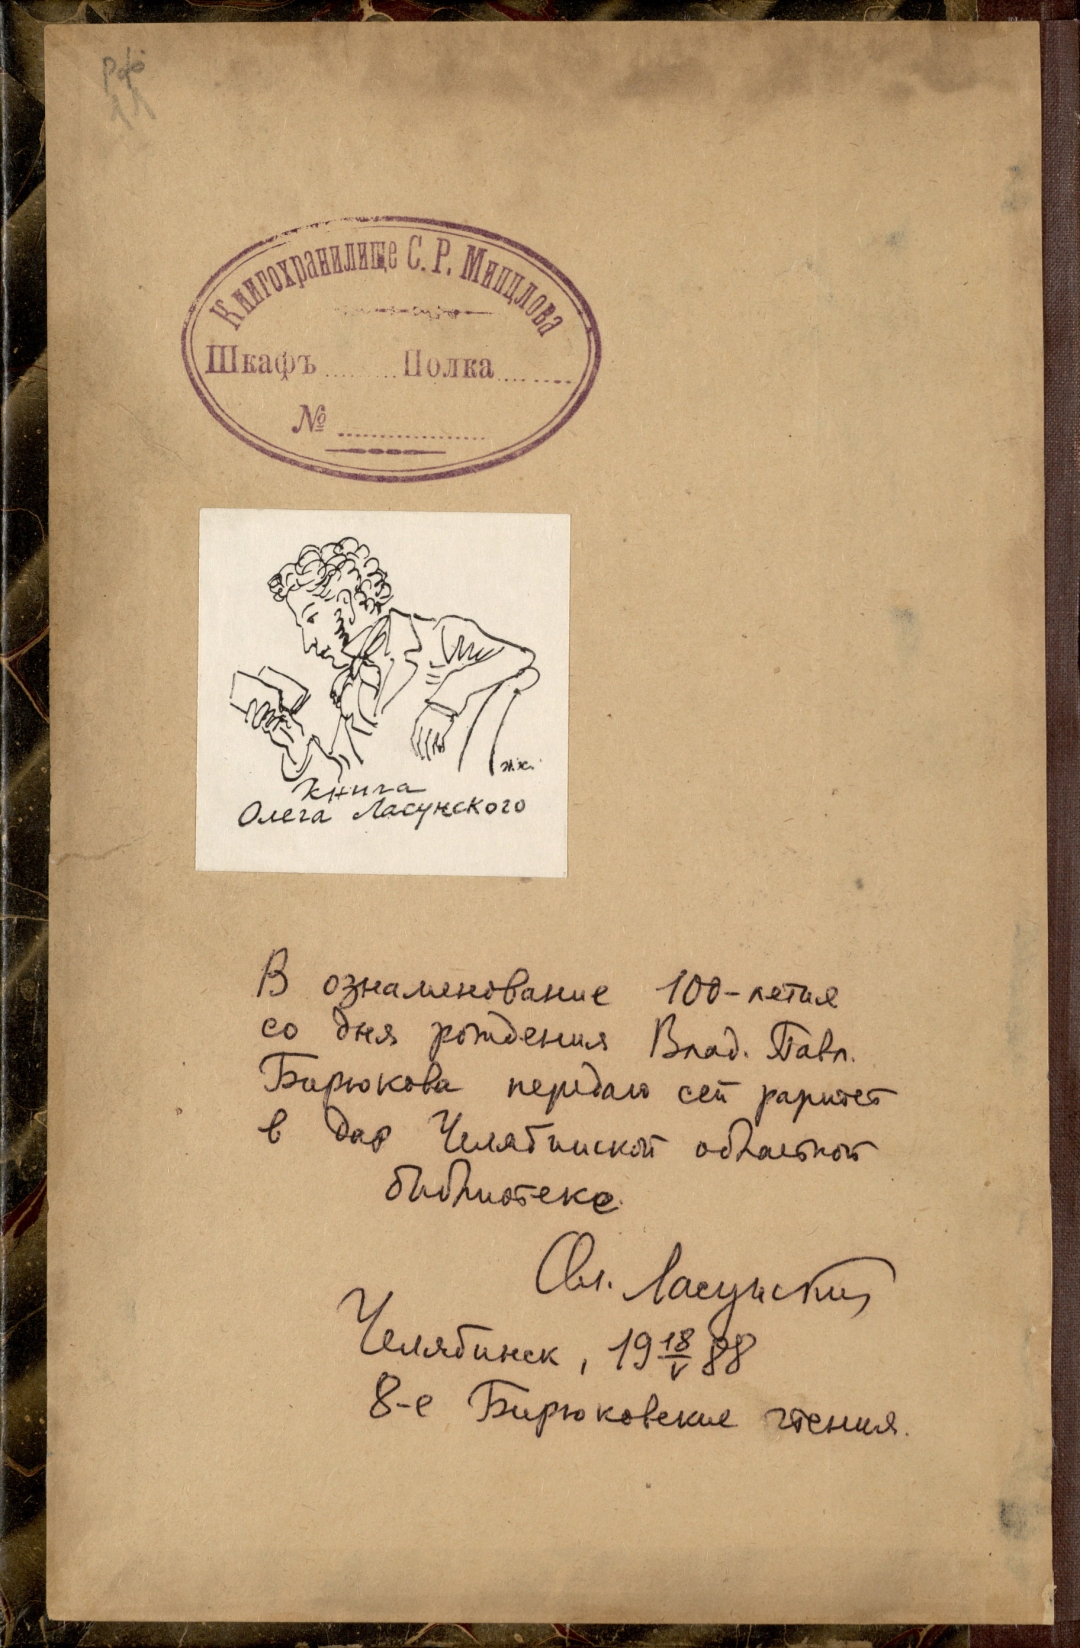 Книгохранилище С. Р. Минцлова
Шкафъ ........ Полка ........
№ ................
Книга
Олега Ласунского
В ознаменование 100-летия
со дня рождения Влад. Павл.
Бирюкова передаю сей раритет
в дар Челябинской областной
библиотеке.
Ол. Ласунский
Челябинск, 19 18/V 88
8-е Бирюковские чтения.